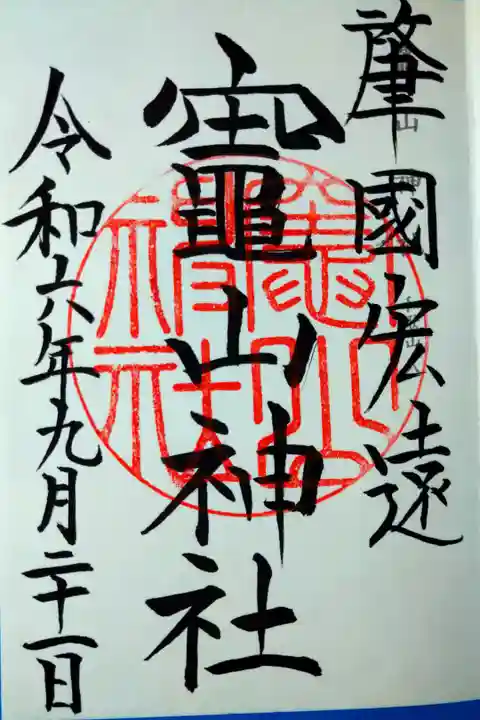 肇國宏遠
竈山神社
令和六年九月二十一日